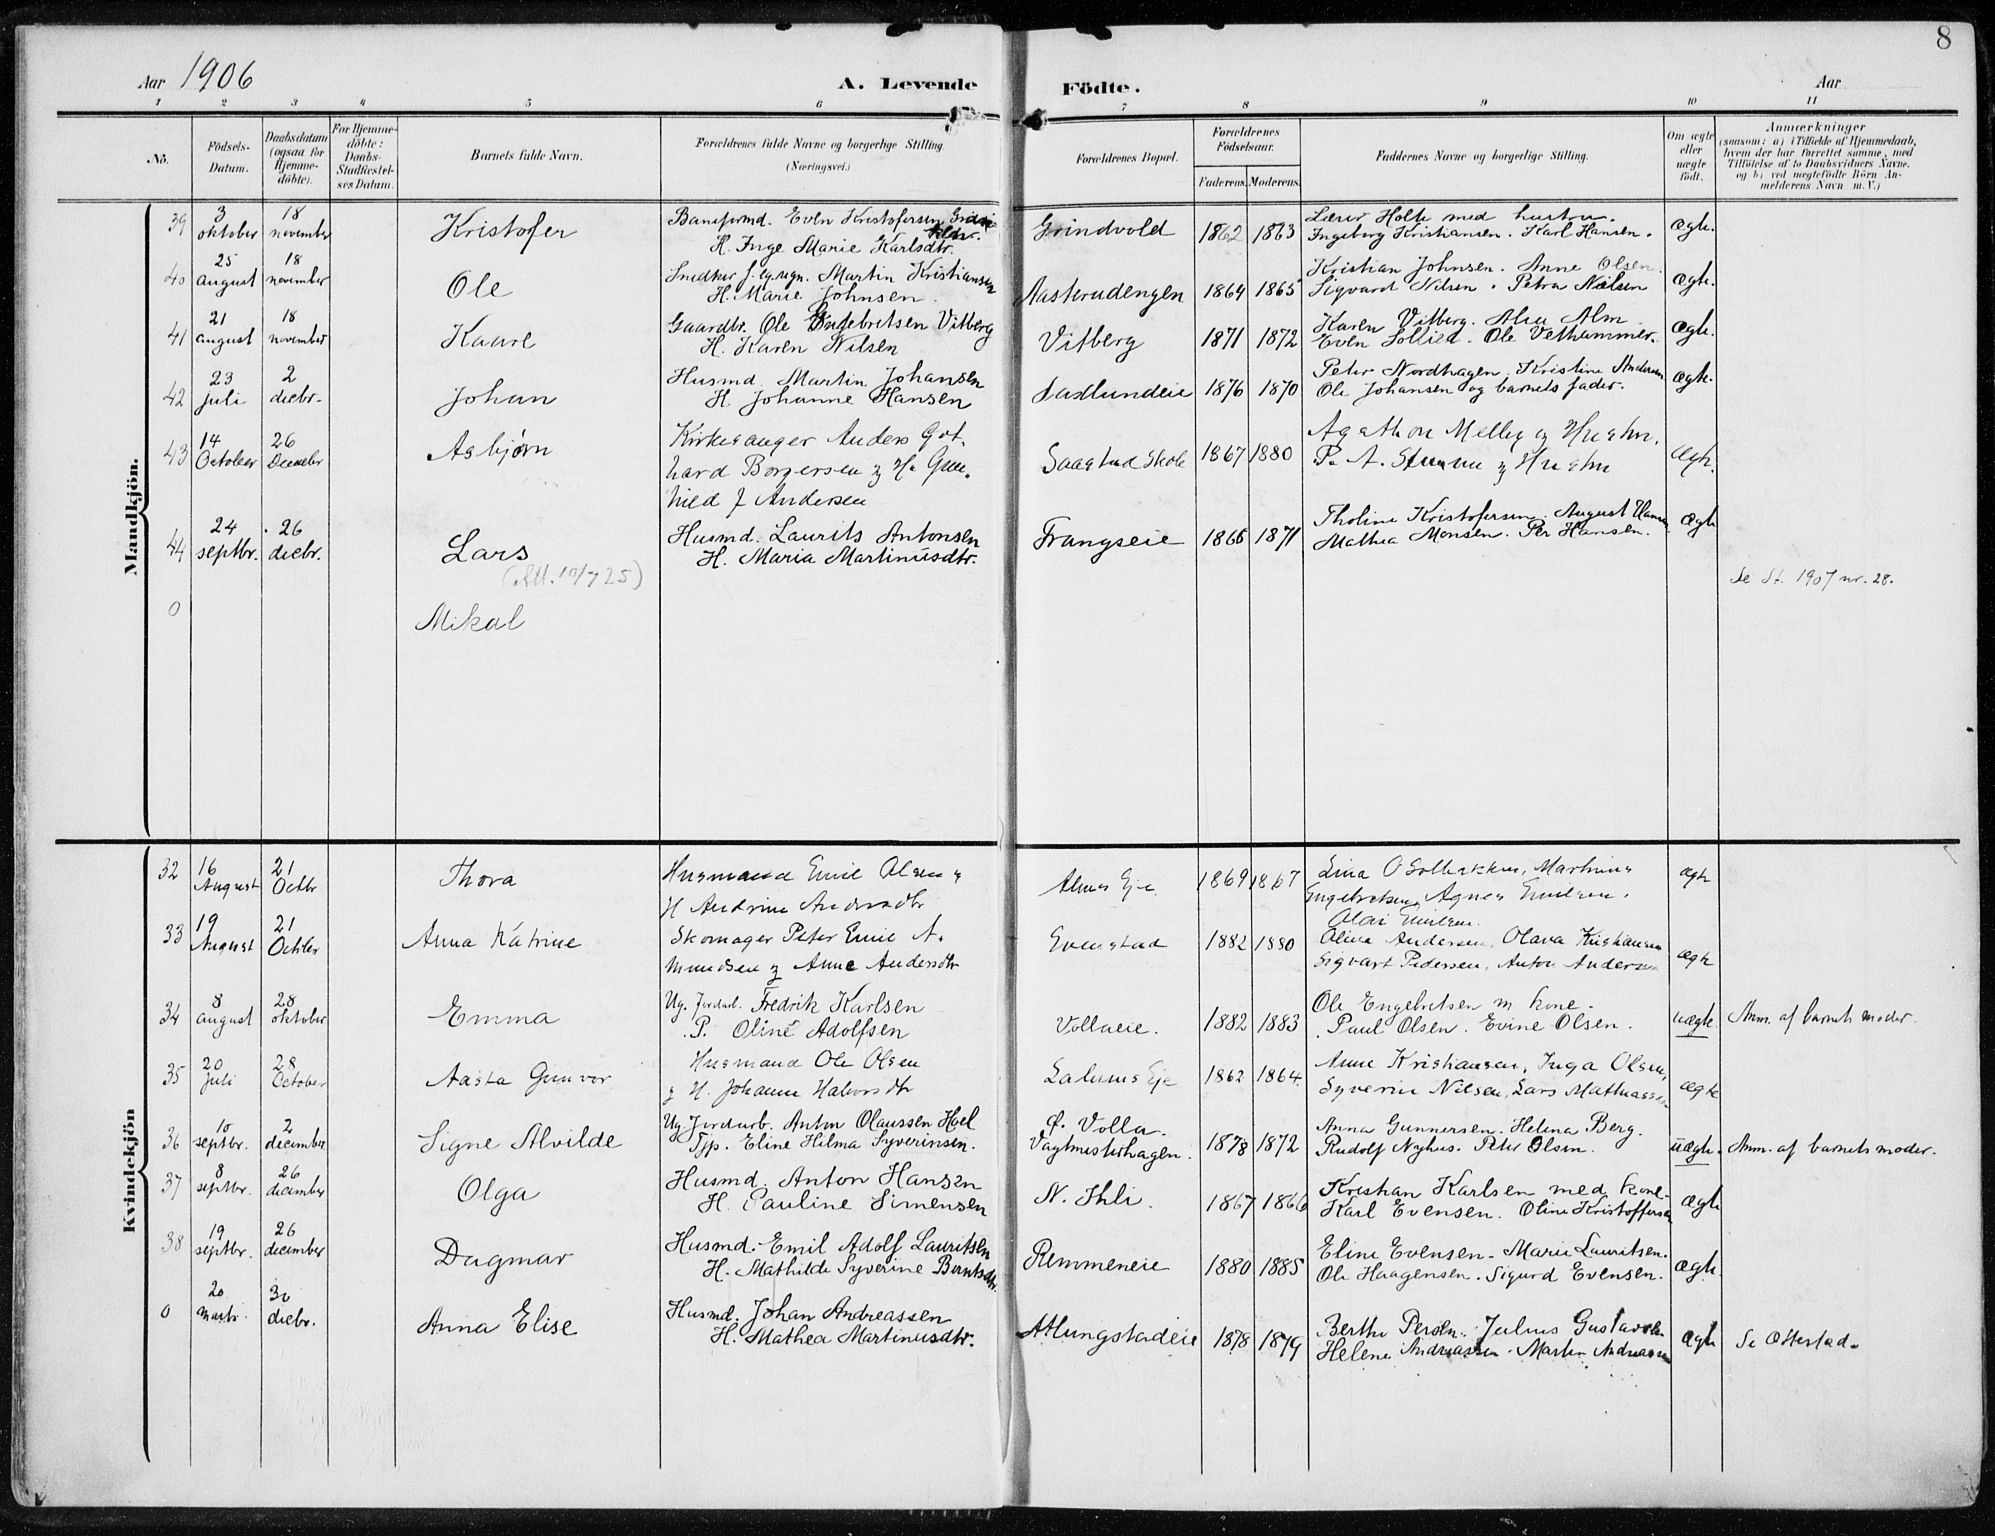 8
Aar 1906
A. Levende Födte.
Aar
1 2 3 4 5 6 7 8 9 10 11
No.
Födsels-
Datum.
Daabsdatum
(ogsaa for
Hjemme-
döbte).
For Hjemme-
döbte:
Daabs-
Stadfæstel-
ses Datum.
Barnets fulde Navn.
Forældrenes fulde Navne og borgerlige Stilling.
(Næringsvei.)
Forældrenes Bopæl.
Forældrenes
Födselsaar.
Faderens. Moderens.
Faddernes Navne og borgerlige Stilling.
Om ægte
eller
uægte
födt.
Anmærkninger
(saasom: a) i Tilfælde af Hjemmedaab,
hvem der har forrettet samme, med
Tilföielse af to Daabsvidners Navne.
og b) ved uegtefödte Börn An-
melderens Navn m. V.)
Mandkjön.
39 3 oktober 18 november Kristofer
Baneformd. Even Kristofersen
H. Inge Marie Karlsdtr.
Grindvold 1862 1863
Lærer Holte med hustru.
Ingeborg Kristiansen. Karl Hansen. ægte.
40 25 august 18 november Ole
Snedker Martin Kristiansen
H. Marie Johnsen.
Aasterudengen 1864 1865
Kristian Johnsen. Anne Olsen.
Sigvard Nilsen. Petra Nielsen ægte.
41 21 august 18 november Kaare
Gaardbr. Ole Engebretsen Vitberg
H. Karen Nilsen
Vitberg 1871 1872
Karen Vitberg. Alm.
Even Sollied. Ole Vethammer. ægte.
42 23 juli 2 decbr. Johan
Husmd. Martin Johansen
H. Johanne Hansen
1876 1870
Peter Nordhagen. Kristine Andersen
Ole Johansen og barnets fader. ægte.
43 14 October 26 Decebr Asbjørn
Kirkesanger Anders Got-
hard Borgersen og H. Gun-
hild f Andersen
Saastad Skole 1867 1880
Agathon Melby og Hustru.
P. A. og Hustru ægte.
44 24 septbr. 26 decbr. Lars
Husmd. Laurits Antonsen
H. Maria Martinusdtr.
Frangseie 1866 1871
Tholine Kristofersen. August Hansen
Mathea Monsen. Per Hansen. ægte
(Att. 10/7 25)
Se St. 1907 nr. 28.
0 Mikal
Kvindekjön
32 16 August 21 Octbr Thora
Husmand Emil Olsen og
H Andrine Andersdtr
Almes Eje 1869 1867
Lina O Martinus
Engebretsen, Agnes Emilsen,
Olai Emilsen. ægte
33 19 August 21 Octbr Anna Katrine
Skomager Peter Emil A-
mundsen og Anne Andersdtr
Evenstad 1882 1880
Olina Andersen, Olava Kristiansen
Sigvart Pedersen, Anton Andersen ægte
34 8 august 28 oktober Emma
Ug. Jordarb. Fredrik Karlsen
P. Oline Adolfsen
Vollaeie. 1882 1883
Ole Engebretsen m. kone.
Paul Olsen. Evine Olsen. uægte. Anm. af barnets moder.
35 20 Juli 28 October Aasta Gunvor
Husmand Ole Olsen
og H. Johanne Halvorsdtr
Lalums Eje 1862 1864.
Anne Kristiansen, Inga Olsen,
Syverin Nilsen, Lars Mathiassen ægte
36 10 septbr. 2 december Signe Alvilde
Ug. Jordarb. Anton Olaussen Hoel
Tjp. Eline Hilma Syverinsen.
Ø. Volla.
Vagtmesterhagen. 1878 1872
Anna Gunnersen. Helena Berg.
Rudolf Nyhus. Peter Olsen. uægte. Anm. af barnets moder.
37 8 septbr. 26 december Olga
Husmd. Anton Hansen
H. Pauline Simensen
N. Ihli. 1867 1866
Kristian Karlsen med kone.
Karl Evensen. Oline Kristoffersen ægte
38 19 septbr. 26 december Dagmar
Husmd. Emil Adolf Lauritsen
H. Mathilde Syverine Berntsdtr.
Remmeneie 1880 1885
Eline Evensen. Marie Lauritsen.
Ole Haagensen. Sigurd Evensen. ægte.
0 20 marts 30 decbr. Anna Elise
Husmd. Johan Andreassen
H. Mathea Martinusdtr.
Atlungstadeie 1878 1879
Berthe Persen. Julius Gustavsen
Helene Andreassen. Martin Andreassen ægte Se Ottestad.